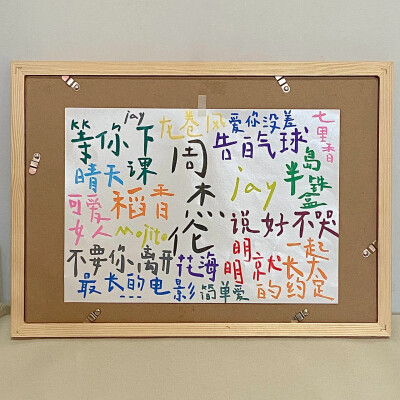 jay
等你下课
龙卷风
爱你没差
七里香
周杰伦
告白气球
晴天
半岛铁盒
可爱女人
稻香
jay
mojito
说好不哭
不要你离开
花海
明明就
一起长大的约定
最长的电影
简单爱